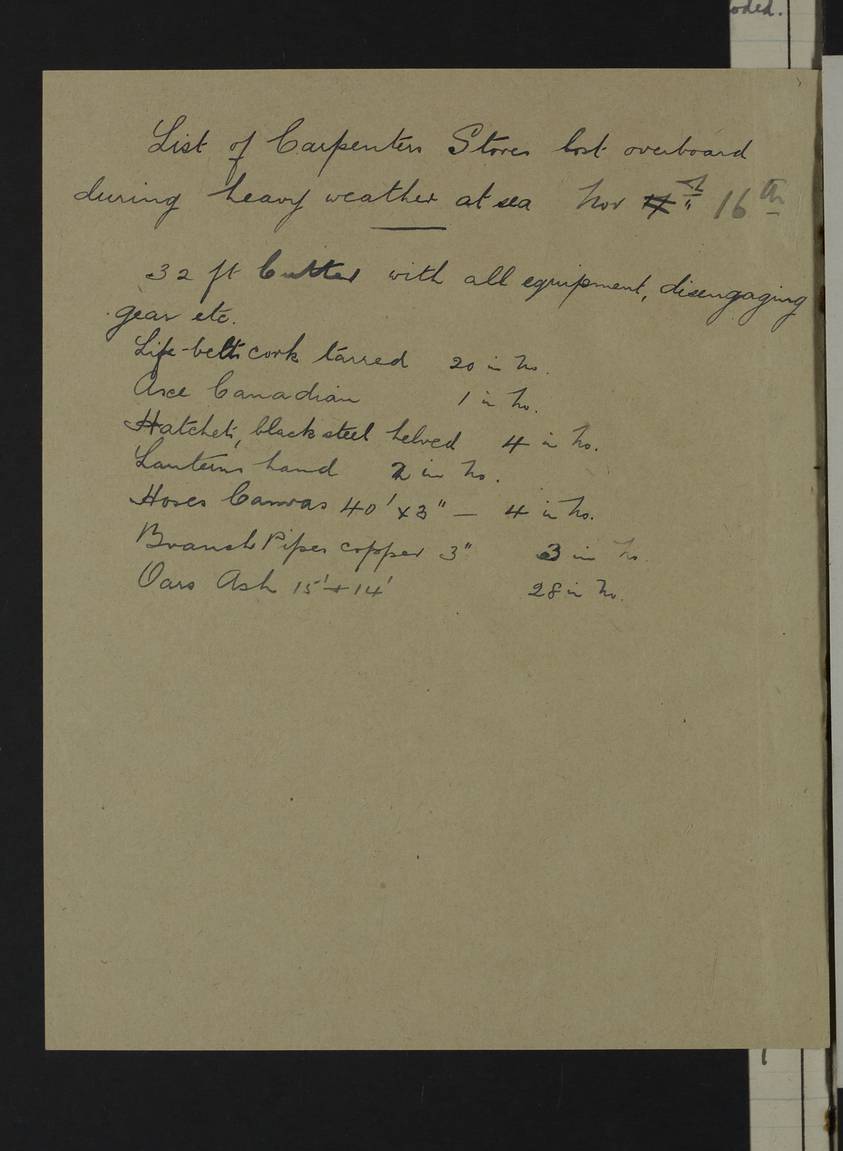 oded.
List of Carpenters Stores lost overboard
during heavy weather at sea Nov 4th 16th
32 ft Cutter with all equipment, disengaging
gear etc.
Life-belts cork tarred 20 in No.
Axe Canadian 1 in No.
Hatchets, black steel helved 4 in No.
Lanterns hand 2 in No.
Hoses Canvas 40' x 3" — 4 in No.
Branch Pipes copper 3" 3 in No.
Oars Ash 15' + 14' 28 in No.